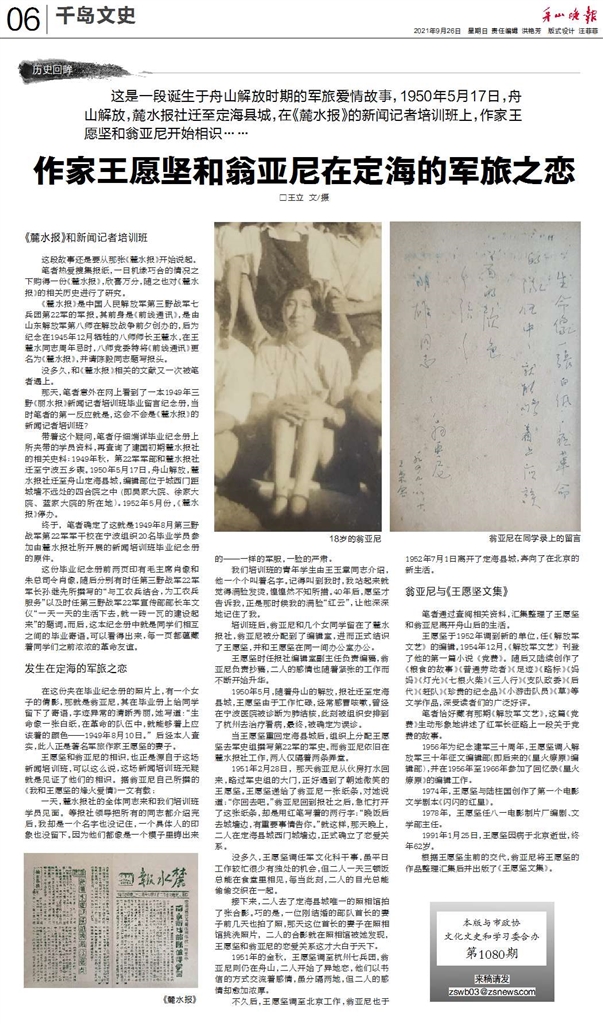 06
千岛文史
舟山晚报
2021年9月26日 星期日 责任编辑 洪艳芳 版式设计 汪菲菲
历史回眸
这是一段诞生于舟山解放时期的军旅爱情故事，1950年5月17日，舟
山解放，麓水报社迁至定海县城，在《麓水报》的新闻记者培训班上，作家王
愿坚和翁亚尼开始相识……
作家王愿坚和翁亚尼在定海的军旅之恋
□王立 文/摄
《麓水报》和新闻记者培训班
这段故事还是要从那张《麓水报》开始说起。
笔者热爱搜集报纸，一日机缘巧合的情况之
下购得一份《麓水报》，欣喜万分，随之也对《麓水
报》的相关历史进行了研究。
《麓水报》是中国人民解放军第三野战军七
兵团第22军的军报，其前身是《前线通讯》，是由
山东解放军第八师在解放战争前夕创办的，后为
纪念在1945年12月牺牲的八师师长王麓水，在王
麓水同志周年忌时，八师党委特将《前线通讯》更
名为《麓水报》，并请陈毅同志题写报头。
没多久，和《麓水报》相关的文献又一次被笔
者遇上。
那天，笔者意外在网上看到了一本1949年三
野《丽水报》新闻记者培训班毕业留言纪念册，当
时笔者的第一反应就是，这会不会是《麓水报》的
新闻记者培训班？
带着这个疑问，笔者仔细端详毕业纪念册上
所夹带的学员资料，再查询了建国初期麓水报社
的相关史料：1949年秋，第22军军部和麓水报社
迁至宁波五乡碶。1950年5月17日，舟山解放，麓
水报社迁至舟山定海县城，编辑部位于城西门距
城墙不远处的四合院之中（即吴家大院、徐家大
院、蓝家大院的所在地）。1952年5月份，《麓水
报》停办。
终于，笔者确定了这就是1949年8月第三野
战军第22军军干校在宁波组织20名毕业学员参
加由麓水报社所开展的新闻培训班毕业纪念册
的原件。
这份毕业纪念册前两页印有毛主席肖像和
朱总司令肖像，随后分别有时任第三野战军22军
军长孙继先所撰写的“与工农兵结合，为工农兵
服务”以及时任第三野战军22军宣传部部长车文
仪“一天一天的生活下去，就一砖一瓦的建设起
来”的题词。而后，这本纪念册中就是同学们相互
之间的毕业寄语，可以看得出来，每一页都蕴藏
着同学们之前浓浓的革命友谊。
发生在定海的军旅之恋
在这份夹在毕业纪念册的照片上，有一个女
子的倩影，那就是翁亚尼，其在毕业册上给同学
留下了寄语，字迹异常的清新秀丽，她写道：“生
命像一张白纸，在革命的队伍中，就能够着上应
该着的颜色——1949年8月10日。”后经本人查
实，此人正是著名军旅作家王愿坚的妻子。
王愿坚和翁亚尼的相识，也正是源自于这场
新闻培训班，可以这么说，这场新闻培训班无疑
就是见证了他们的相识。据翁亚尼自己所撰的
《我和王愿坚的烽火爱情》一文有载：
一天，麓水报社的全体同志来和我们培训班
学员见面。等报社领导把所有的同志都介绍完
后，我却是一个名字也没记住，一个具体人的印
象也没留下。因为他们都像是一个模子里铸出来
麓水报
《麓水报》
18岁的翁亚尼
的——一样的军服，一脸的严肃。
我们培训班的青年学生由王玉章同志介绍，
他一个个叫着名字。记得叫到我时，我站起来就
觉得满脸发烫，惶惶然不知所措。40年后，愿坚才
告诉我，正是那时候我的满脸“红云”，让他深深
地记住了我。
培训班后，翁亚尼和几个女同学留在了麓水
报社，翁亚尼被分配到了编辑室，进而正式结识
了王愿坚，并和王愿坚在同一间办公室办公。
王愿坚时任报社编辑室副主任负责编稿，翁
亚尼负责抄稿，二人的感情也随着紧张的工作而
不断开始升华。
1950年5月，随着舟山的解放，报社迁至定海
县城，王愿坚由于工作忙碌，经常感冒咳嗽，曾经
在宁波医院被诊断为肺结核，此刻被组织安排到
了杭州去治疗看病，最终，被确定为误诊。
当王愿坚重回定海县城后，组织上分配王愿
坚去军史组撰写第22军的军史，而翁亚尼依旧在
麓水报社工作，两人仅隔着两条弄堂。
1951年2月28日，那天翁亚尼从伙房打水回
来，路过军史组的大门，正好遇到了朝她微笑的
王愿坚，王愿坚递给了翁亚尼一张纸条，对她说
道：“你回去吧。”翁亚尼回到报社之后，急忙打开
了这张纸条，却是用红笔写着的两行字：“晚饭后
去城墙边，有重要事情告你。”就这样，那天晚上，
二人在定海县城西门城墙边，正式确立了恋爱关
系。
没多久，王愿坚调任军文化科干事，虽平日
工作较忙很少有独处的机会，但二人一天三顿饭
总能在食堂里相见，每当此刻，二人的目光总能
偷偷交织在一起。
接下来，二人去了定海县城唯一的照相馆拍
了张合影，巧的是，一位刚结婚的部队首长的妻
子前几天也拍了照，那天这位首长的妻子在照相
馆挑洗照片，二人的合影就在照相馆被她发现，
王愿坚和翁亚尼的恋爱关系这才大白于天下。
1951年的金秋，王愿坚调至杭州七兵团，翁
亚尼则仍在舟山，二人开始了异地恋，他们以书
信的方式交流着感情，虽分隔两地，但二人的感
情却愈加浓厚。
不久后，王愿坚调至北京工作，翁亚尼也于
生命像一张白纸，在革命
的队伍中，就能够着上应该
着的颜色
翁亚尼
翁亚尼在同学录上的留言
1952年7月1日离开了定海县城，奔向了在北京的
新生活。
翁亚尼与《王愿坚文集》
笔者通过查阅相关资料，汇集整理了王愿坚
和翁亚尼离开舟山后的生活。
王愿坚于1952年调到新的单位，任《解放军
文艺》的编辑。1954年12月，《解放军文艺》刊登
了他的第一篇小说《党费》。随后又陆续创作了
《粮食的故事》《普通劳动者》《足迹》《路标》《妈
妈》《灯光》《七根火柴》《三人行》《支队政委》《后
代》《赶队》《珍贵的纪念品》《小游击队员》《草》等
文学作品，深受读者们的广泛好评。
笔者恰好藏有那期《解放军文艺》，这篇《党
费》生动形象地讲述了红军长征路上一段关于党
费的故事。
1956年为纪念建军三十周年，王愿坚调入解
放军三十年征文编辑部（即后来的《星火燎原》编
辑部），并在1956年至1966年参加了回忆录《星火
燎原》的编辑工作。
1974年，王愿坚与陆柱国创作了第一个电影
文学剧本《闪闪的红星》。
1978年，王愿坚任八一电影制片厂编剧、文
学部主任。
1991年1月25日，王愿坚因病于北京逝世，终
年62岁。
根据王愿坚生前的交代，翁亚尼将王愿坚的
作品整理汇集后并出版了《王愿坚文集》。
本版与市政协
文化文史和学习委合办
第1080期
来稿请发
zswb03@zsnews.com